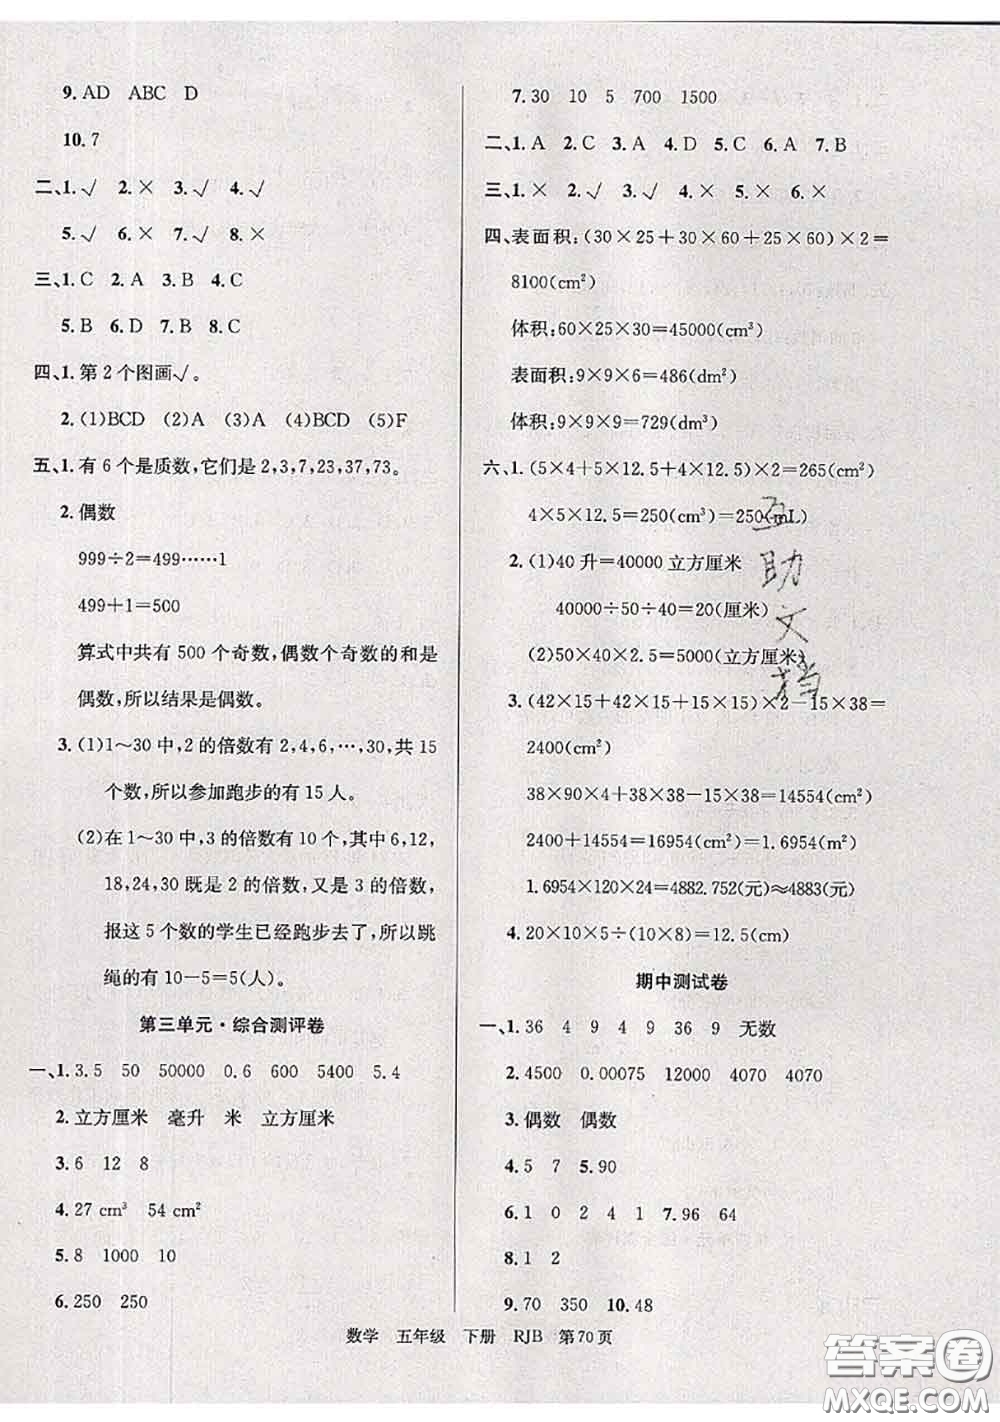 9. AD　ABC　D
10. 7
二、1. √　2. ×　3. √　4. √
5. √　6. ×　7. √　8. ×
三、1. C　2. A　3. B　4. C
5. B　6. D　7. B　8. C
四、1. 第 2 个图画√。
2. (1)BCD　(2)A　(3)A　(4)BCD　(5)F
五、1. 有 6 个是质数,它们是 2,3,7,23,37,73。
2. 偶数
999÷2=499……1
499+1=500
算式中共有 500 个奇数,偶数个奇数的和是
偶数,所以结果是偶数。
3. (1)1～30 中,2 的倍数有 2,4,6,…,30,共 15
个数,所以参加跑步的有 15 人。
(2)在 1～30 中,3 的倍数有 10 个,其中 6,12,
18,24,30 既是 2 的倍数,又是 3 的倍数,
报这 5 个数的学生已经跑步去了,所以跳
绳的有 10-5=5(人)。
第三单元·综合测评卷
一、1. 3.5　50　50000　0.6　600　5400　5.4
2. 立方厘米　毫升　米　立方厘米
3. 6　12　8
4. 27 cm³　54 cm²
5. 8　1000　10
6. 250　250
7. 30　10　5　700　1500
二、1. A　2. C　3. A　4. D　5. C　6. A　7. B
三、1. ×　2. √　3. √　4. ×　5. ×　6. ×
四、表面积:(30×25+30×60+25×60)×2=
8100(cm²)
体积:60×25×30=45000(cm³)
表面积:9×9×6=486(dm²)
体积:9×9×9=729(dm³)
六、1. (5×4+5×12.5+4×12.5)×2=265(cm²)
4×5×12.5=250(cm³)=250(mL)
2. (1)40 升=40000 立方厘米
40000÷50÷40=20(厘米)
(2)50×40×2.5=5000(立方厘米)
3. (42×15+42×15+15×15)×2-15×38=
2400(cm²)
38×90×4+38×38-15×38=14554(cm²)
2400+14554=16954(cm²)=1.6954(m²)
1.6954×120×24=4882.752(元)≈4883(元)
4. 20×10×5÷(10×8)=12.5(cm)
期中测试卷
一、1. 36　4　9　4　9　36　9　无数
2. 4500　0.00075　12000　4070　4070
3. 偶数　偶数
4. 5　7　5. 90
6. 1　0　2　4　1　7. 96　64
8. 1　2
9. 70　350　10. 48
互
助
文
档
数学　五年级　下册　RJB　第70页
答案圈
MXQE.COM